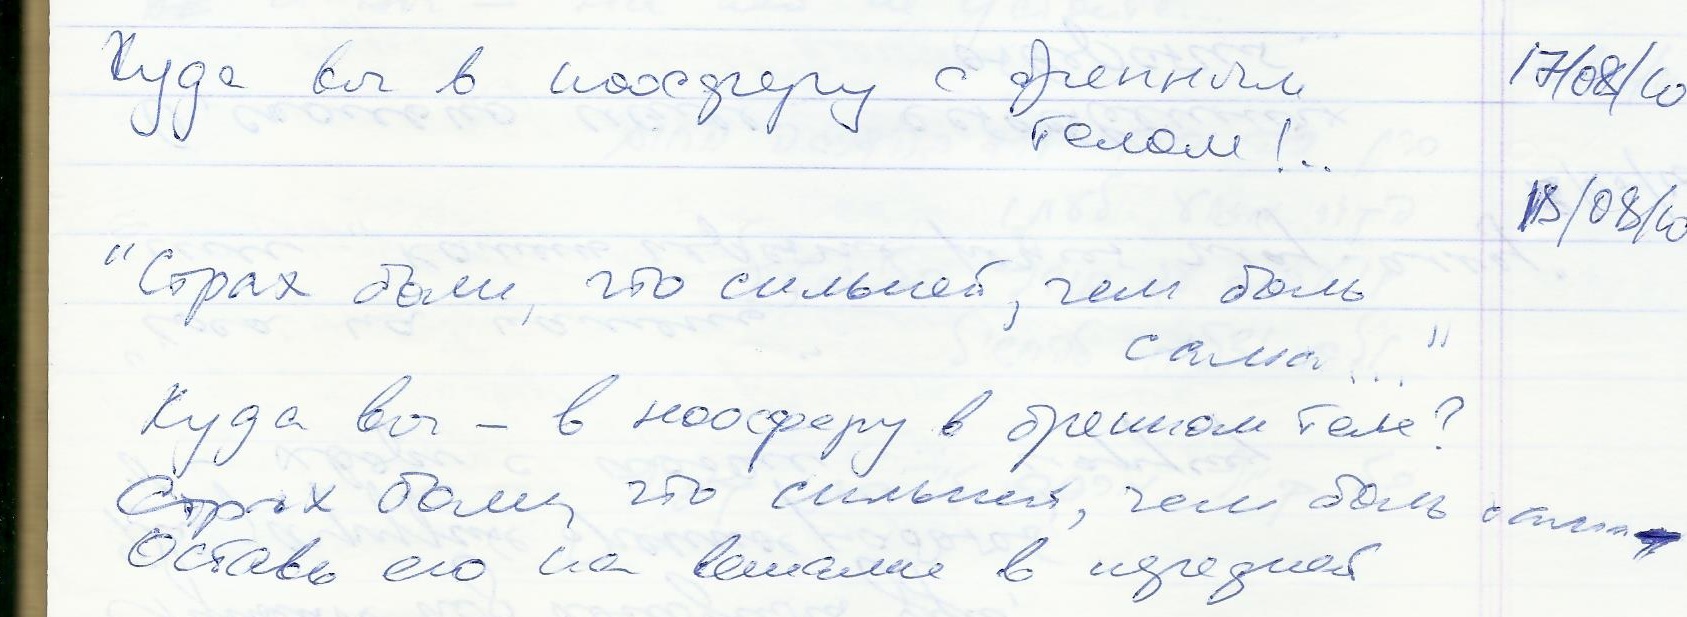 Куда вы в ноосферу с бренным 17/08/10
телом!..
18/08/10
"Страх боли, что сильней, чем боль
сама..."
Куда вы – в ноосферу в бренном теле?
Страх боли, что сильней, чем боль сама
Оставь его на вешалке в передней